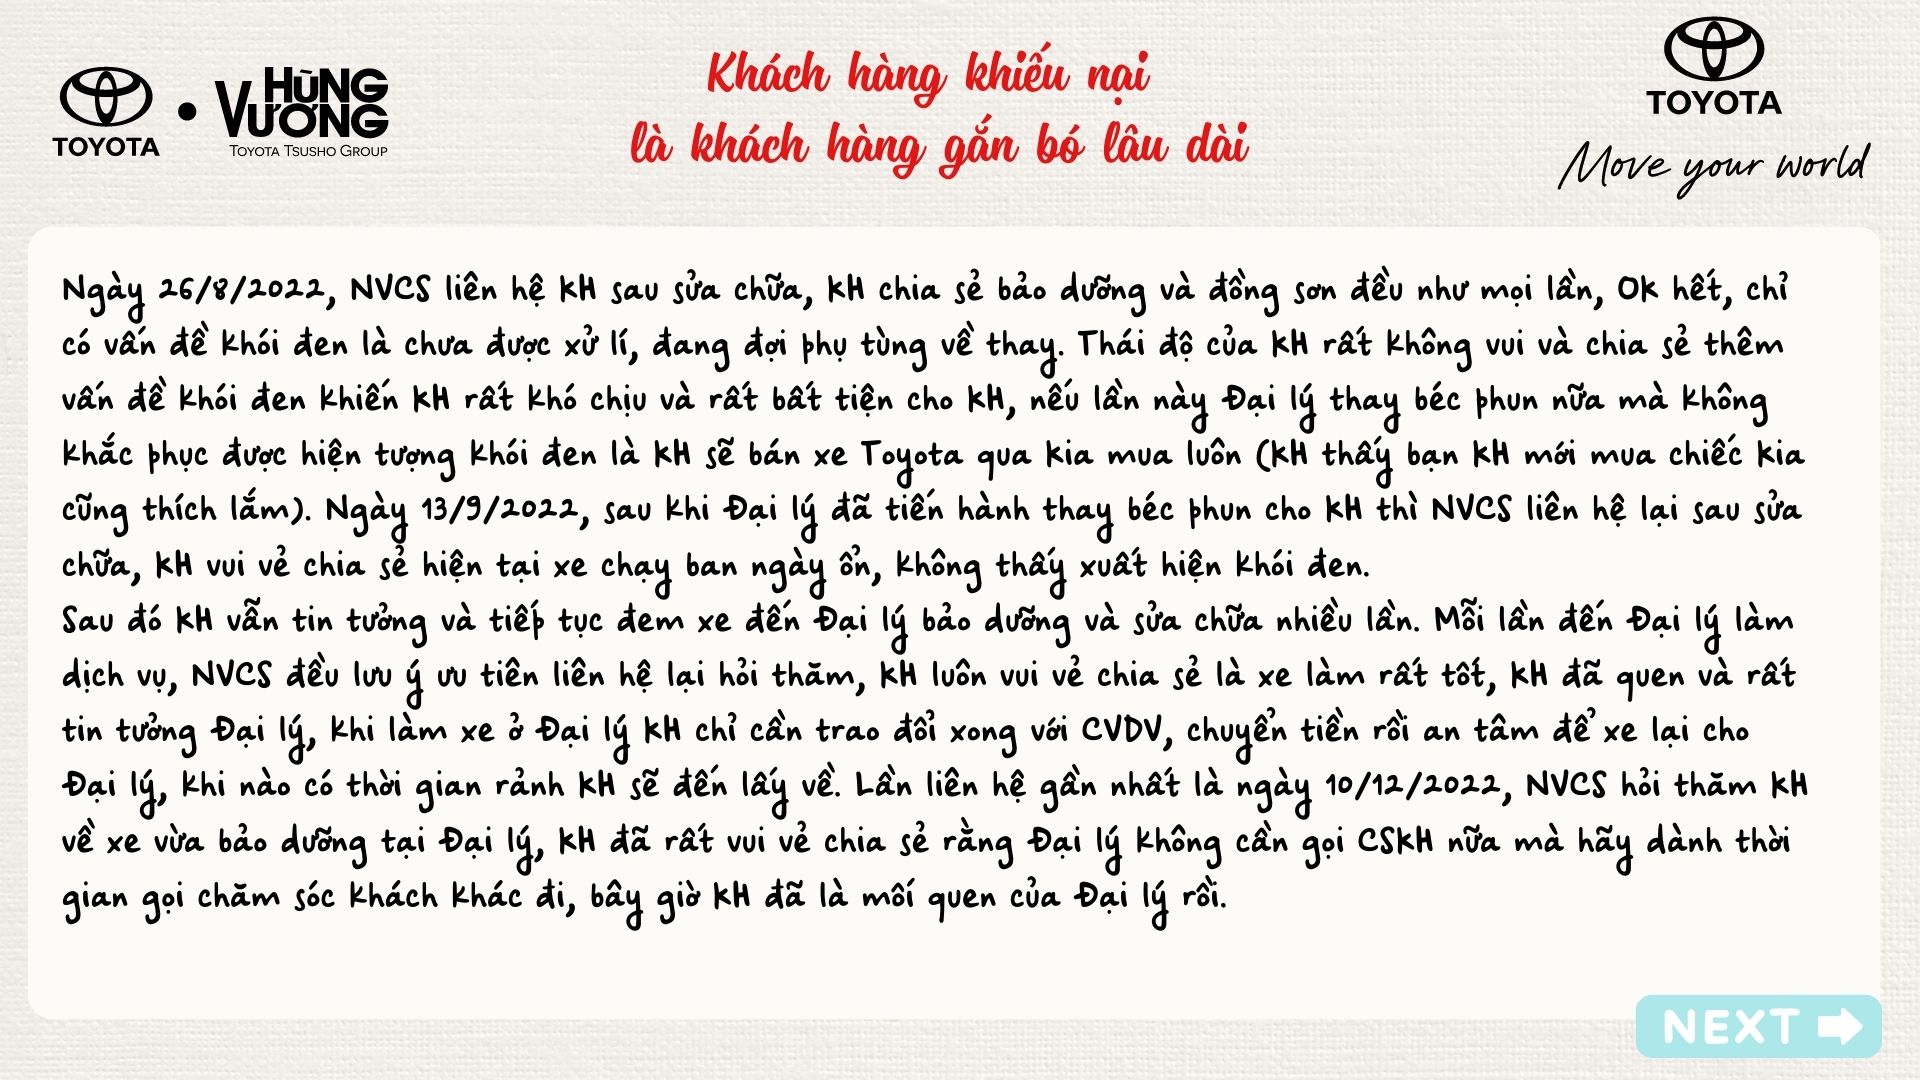 TOYOTA
HÙNG
VƯƠNG
TOYOTA TSUSHO GROUP
Khách hàng khiếu nại
là khách hàng gắn bó lâu dài
TOYOTA
Move your world
Ngày 26/8/2022, NVCS liên hệ KH sau sửa chữa, KH chia sẻ bảo dưỡng và đồng sơn đều như mọi lần, Ok hết, chỉ
có vấn đề khói đen là chưa được xử lí, đang đợi phụ tùng về thay. Thái độ của KH rất không vui và chia sẻ thêm
vấn đề khói đen khiến KH rất khó chịu và rất bất tiện cho KH, nếu lần này Đại lý thay béc phun nữa mà không
khắc phục được hiện tượng khói đen là KH sẽ bán xe Toyota qua kia mua luôn (KH thấy bạn KH mới mua chiếc kia
cũng thích lắm). Ngày 13/9/2022, sau khi Đại lý đã tiến hành thay béc phun cho KH thì NVCS liên hệ lại sau sửa
chữa, KH vui vẻ chia sẻ hiện tại xe chạy ban ngày ổn, không thấy xuất hiện khói đen.
Sau đó KH vẫn tin tưởng và tiếp tục đem xe đến Đại lý bảo dưỡng và sửa chữa nhiều lần. Mỗi lần đến Đại lý làm
dịch vụ, NVCS đều lưu ý ưu tiên liên hệ lại hỏi thăm, KH luôn vui vẻ chia sẻ là xe làm rất tốt, KH đã quen và rất
tin tưởng Đại lý, khi làm xe ở Đại lý KH chỉ cần trao đổi xong với CVDV, chuyển tiền rồi an tâm để xe lại cho
Đại lý, khi nào có thời gian rảnh KH sẽ đến lấy về. Lần liên hệ gần nhất là ngày 10/12/2022, NVCS hỏi thăm KH
về xe vừa bảo dưỡng tại Đại lý, KH đã rất vui vẻ chia sẻ rằng Đại lý không cần gọi CSKH nữa mà hãy dành thời
gian gọi chăm sóc khách khác đi, bây giờ KH đã là mối quen của Đại lý rồi.
NEXT